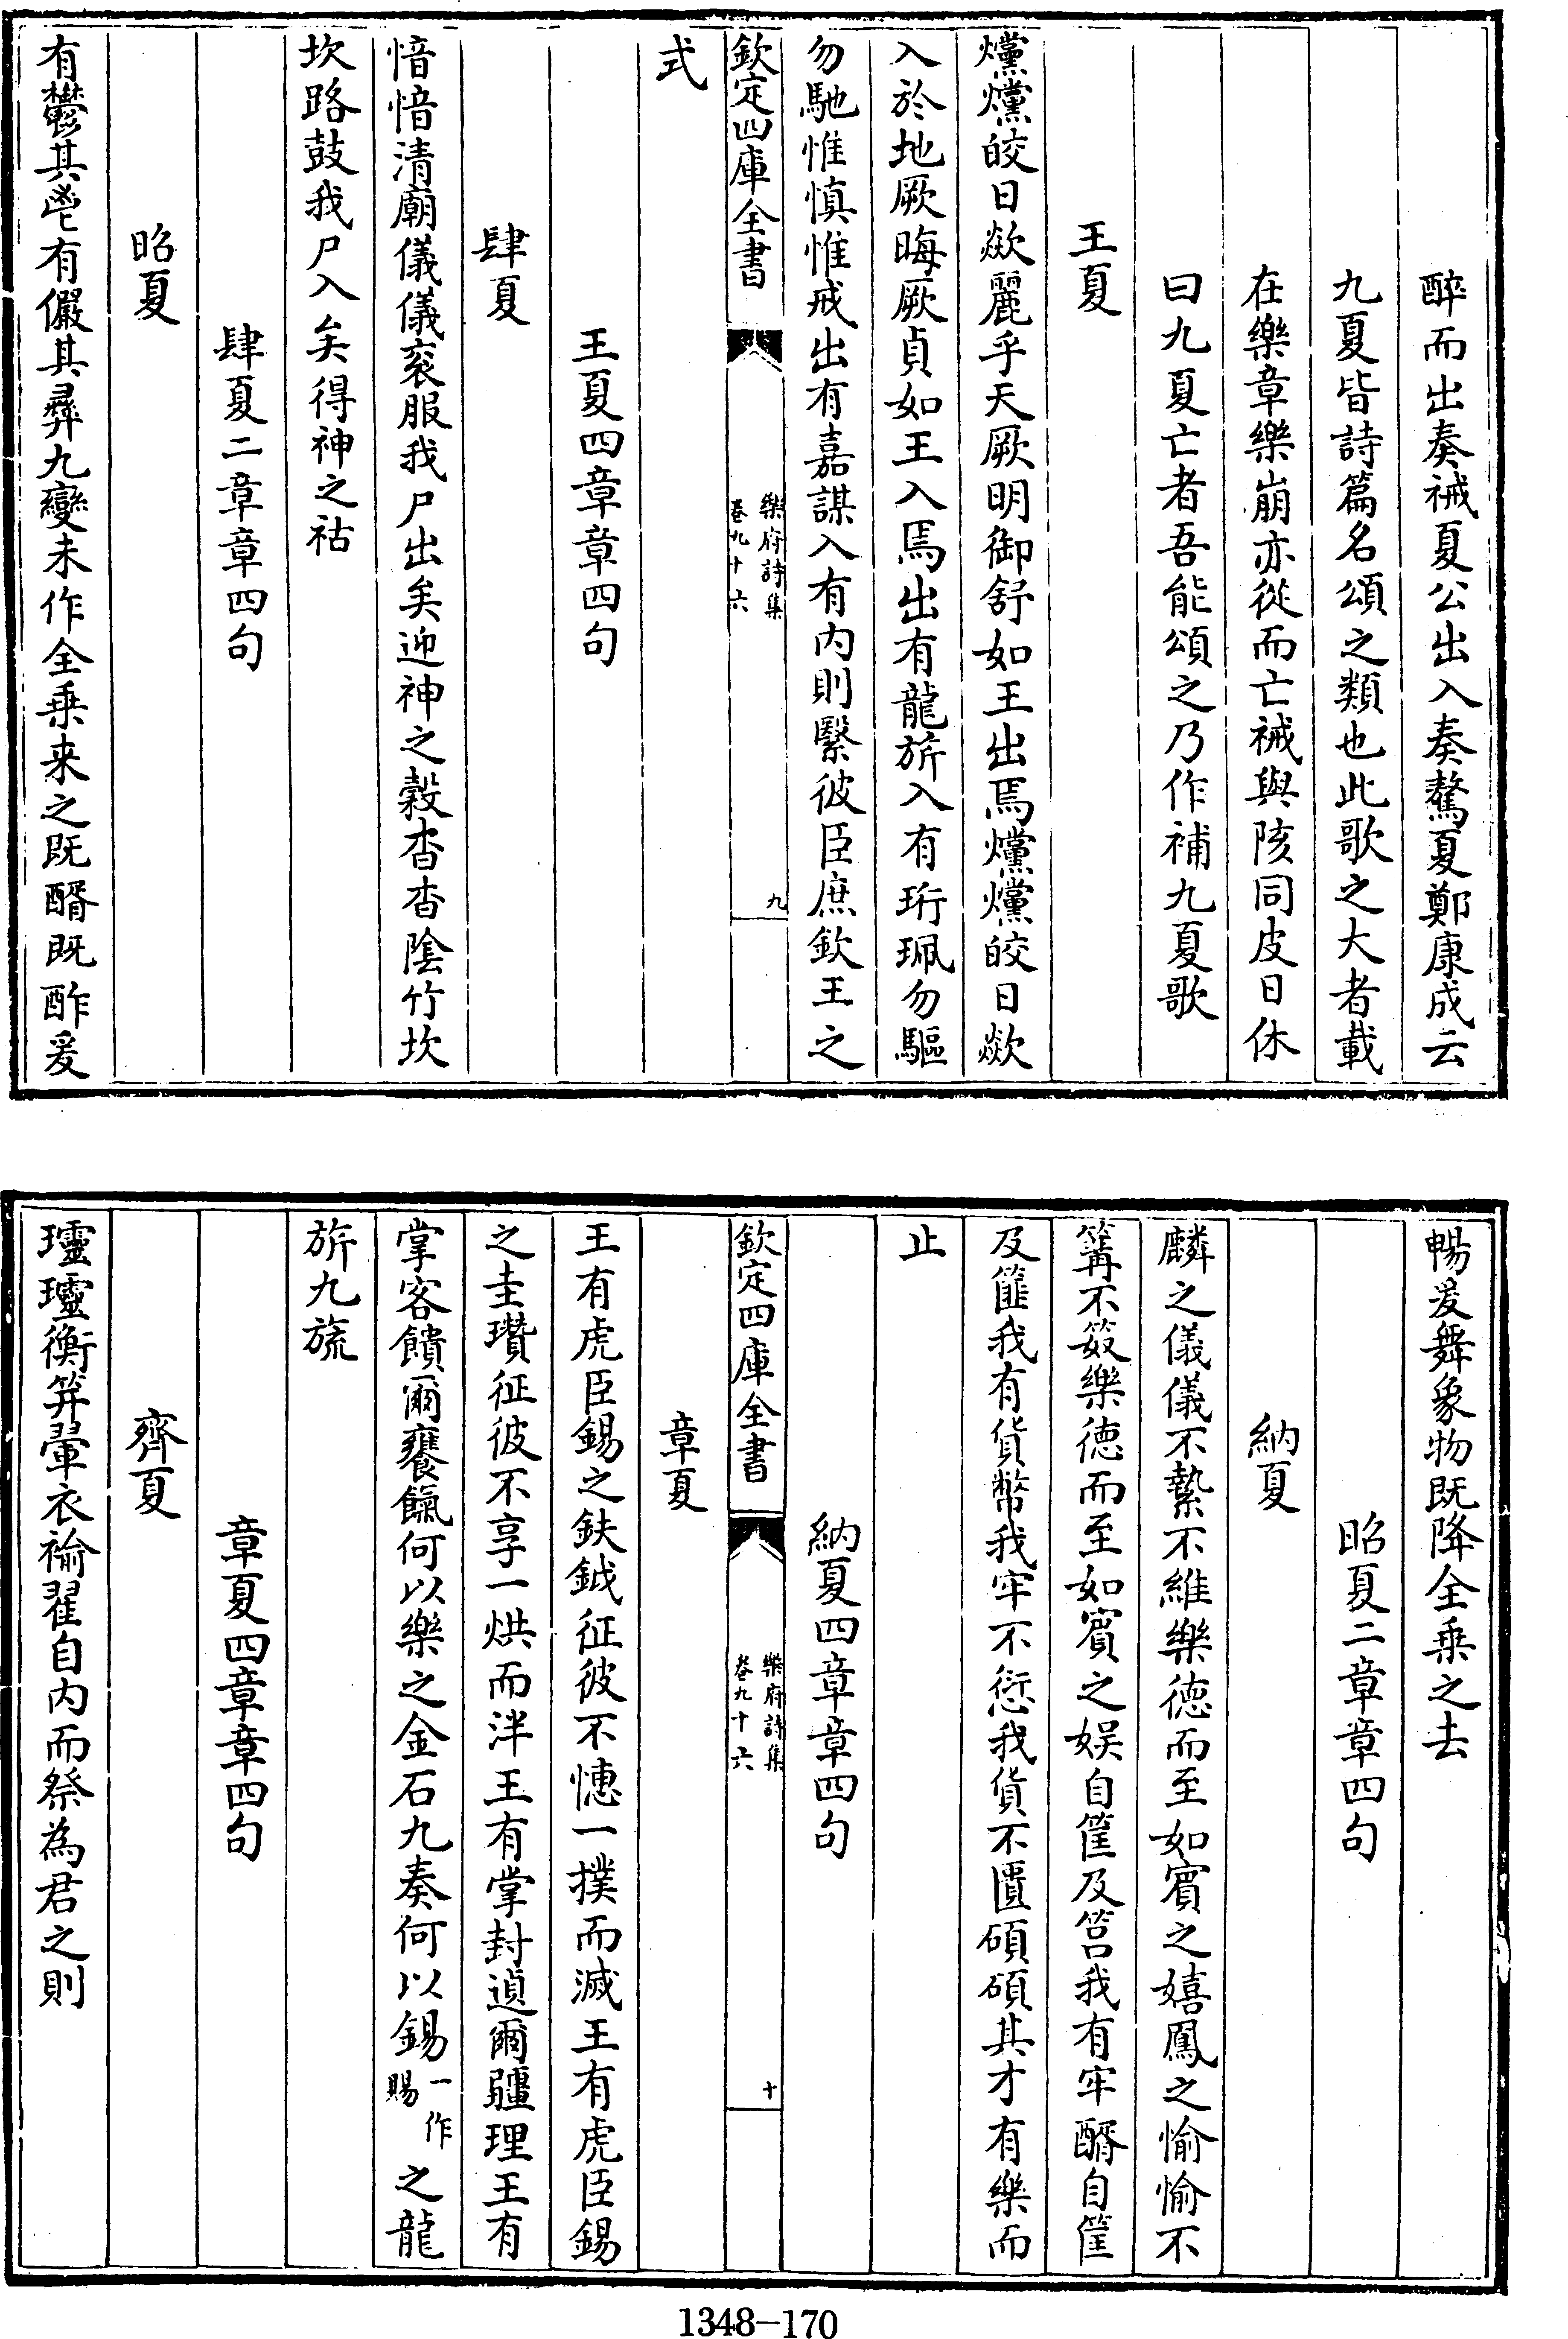 醉而出奏祴夏公出入奏驁夏鄭康成云
九夏皆詩篇名頌之類也此歌之大者載
在樂章樂崩亦從而亡祴與陔同皮日休
曰九夏亡者吾能頌之乃作補九夏歌
王夏
爣爣皎日歘麗乎天厥明御舒如王出焉爣爣皎日歘
入於地厥晦厥貞如王入焉出有龍旂入有珩珮勿驅
勿馳惟慎惟戒出有嘉謀入有内則緊彼臣庶欽王之
欽定四庫全書
樂府詩集
卷九十六
九
式
王夏四章章四句
肆夏
愔愔清廟儀儀衮服我尸出矣迎神之穀杳杳陰竹坎
坎路鼓我尸入矣得神之祜
肆夏二章章四句
昭夏
有鬱其鬯有儼其彝九變未作全乗来之既醑既酢爰
暢爰舞象物既降全乗之去
昭夏二章章四句
納夏
麟之儀儀不縶不維樂徳而至如賓之嬉鳳之愉愉不
篝不笯樂徳而至如賓之娱自筐及筥我有牢醑自筐
及篚我有貨幣我牢不愆我貨不匱碩碩其才有樂而
止
納夏四章章四句
欽定四庫全書
樂府詩集
卷九十六
十
章夏
王有虎臣錫之鈇鉞征彼不憓一撲而滅王有虎臣錫
之圭瓚征彼不享一烘而泮王有掌封遉爾疆理王有
掌客饋爾饔餼何以樂之金石九奏何以錫一作賜之龍
旂九旒
章夏四章章四句
齊夏
瓗瓗衡笄翬衣褕翟自内而祭為君之則
1348-170